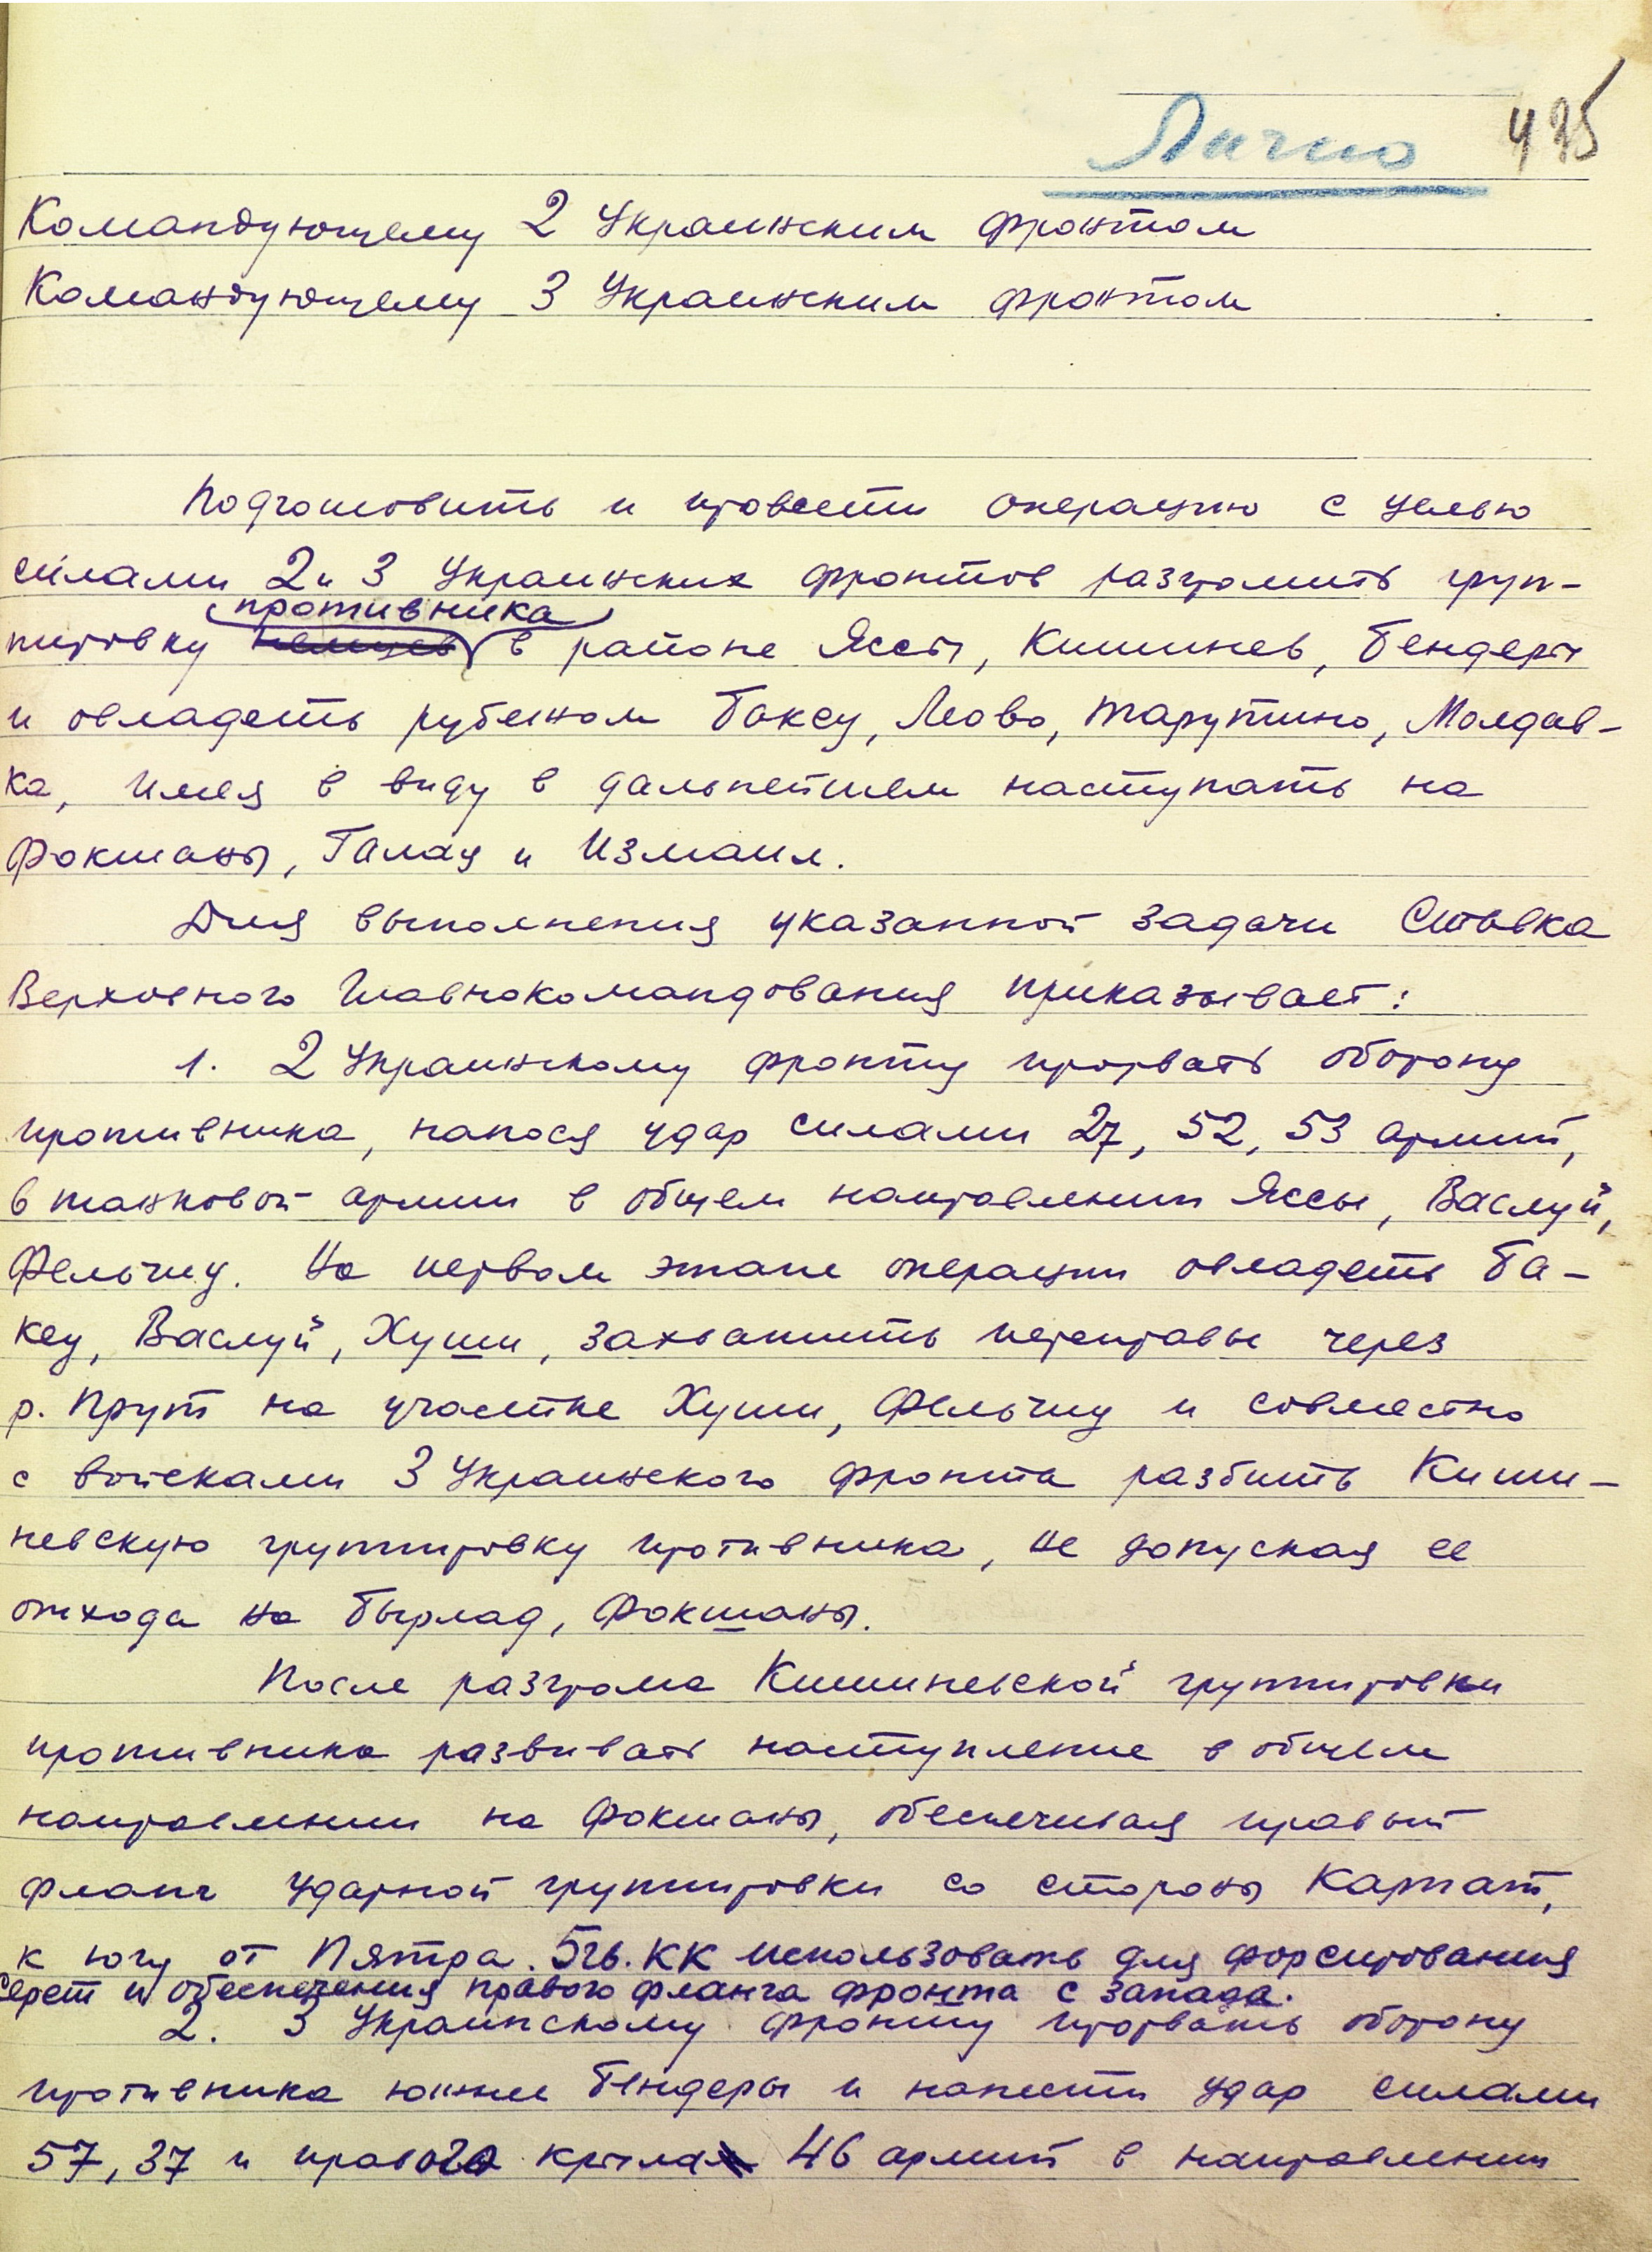 Лично 435
Командующему 2 Украинским фронтом
Командующему 3 Украинским фронтом
Подготовить и провести операцию с целью
силами 2 и 3 Украинских фронтов разгромить груп-
противника
пировку немцев в районе Яссы, Кишинев, Бендеры
и овладеть рубежом Бакеу, Леово, Тарутино, Молдав-
ка, имея в виду в дальнейшем наступать на
Фокшаны, Галац и Измаил.
Для выполнения указанной задачи Ставка
Верховного Главнокомандования приказывает:
1. 2 Украинскому фронту прорвать оборону
противника, нанося удар силами 27, 52, 53 армий,
6 танковой армии в общем направлении Яссы, Васлуй,
Фельчиу. На первом этапе операции овладеть Ба-
кеу, Васлуй, Хуши, захватить переправы через
р. Прут на участке Хуши, Фельчиу и совместно
с войсками 3 Украинского фронта разбить Киши-
невскую группировку противника, не допуская ее
отхода на Бырлад, Фокшаны.
После разгрома Кишиневской группировки
противника развивать наступление в общем
направлении на Фокшаны, обеспечивая правый
фланг ударной группировки со стороны Карпат,
к югу от Пятра. 5 гв. КК использовать для форсирования
Серет и обеспечения правого фланга фронта с запада.
2. 3 Украинскому фронту прорвать оборону
противника южнее Бендеры и нанести удар силами
57, 37 и правого крыла 46 армий в направлении